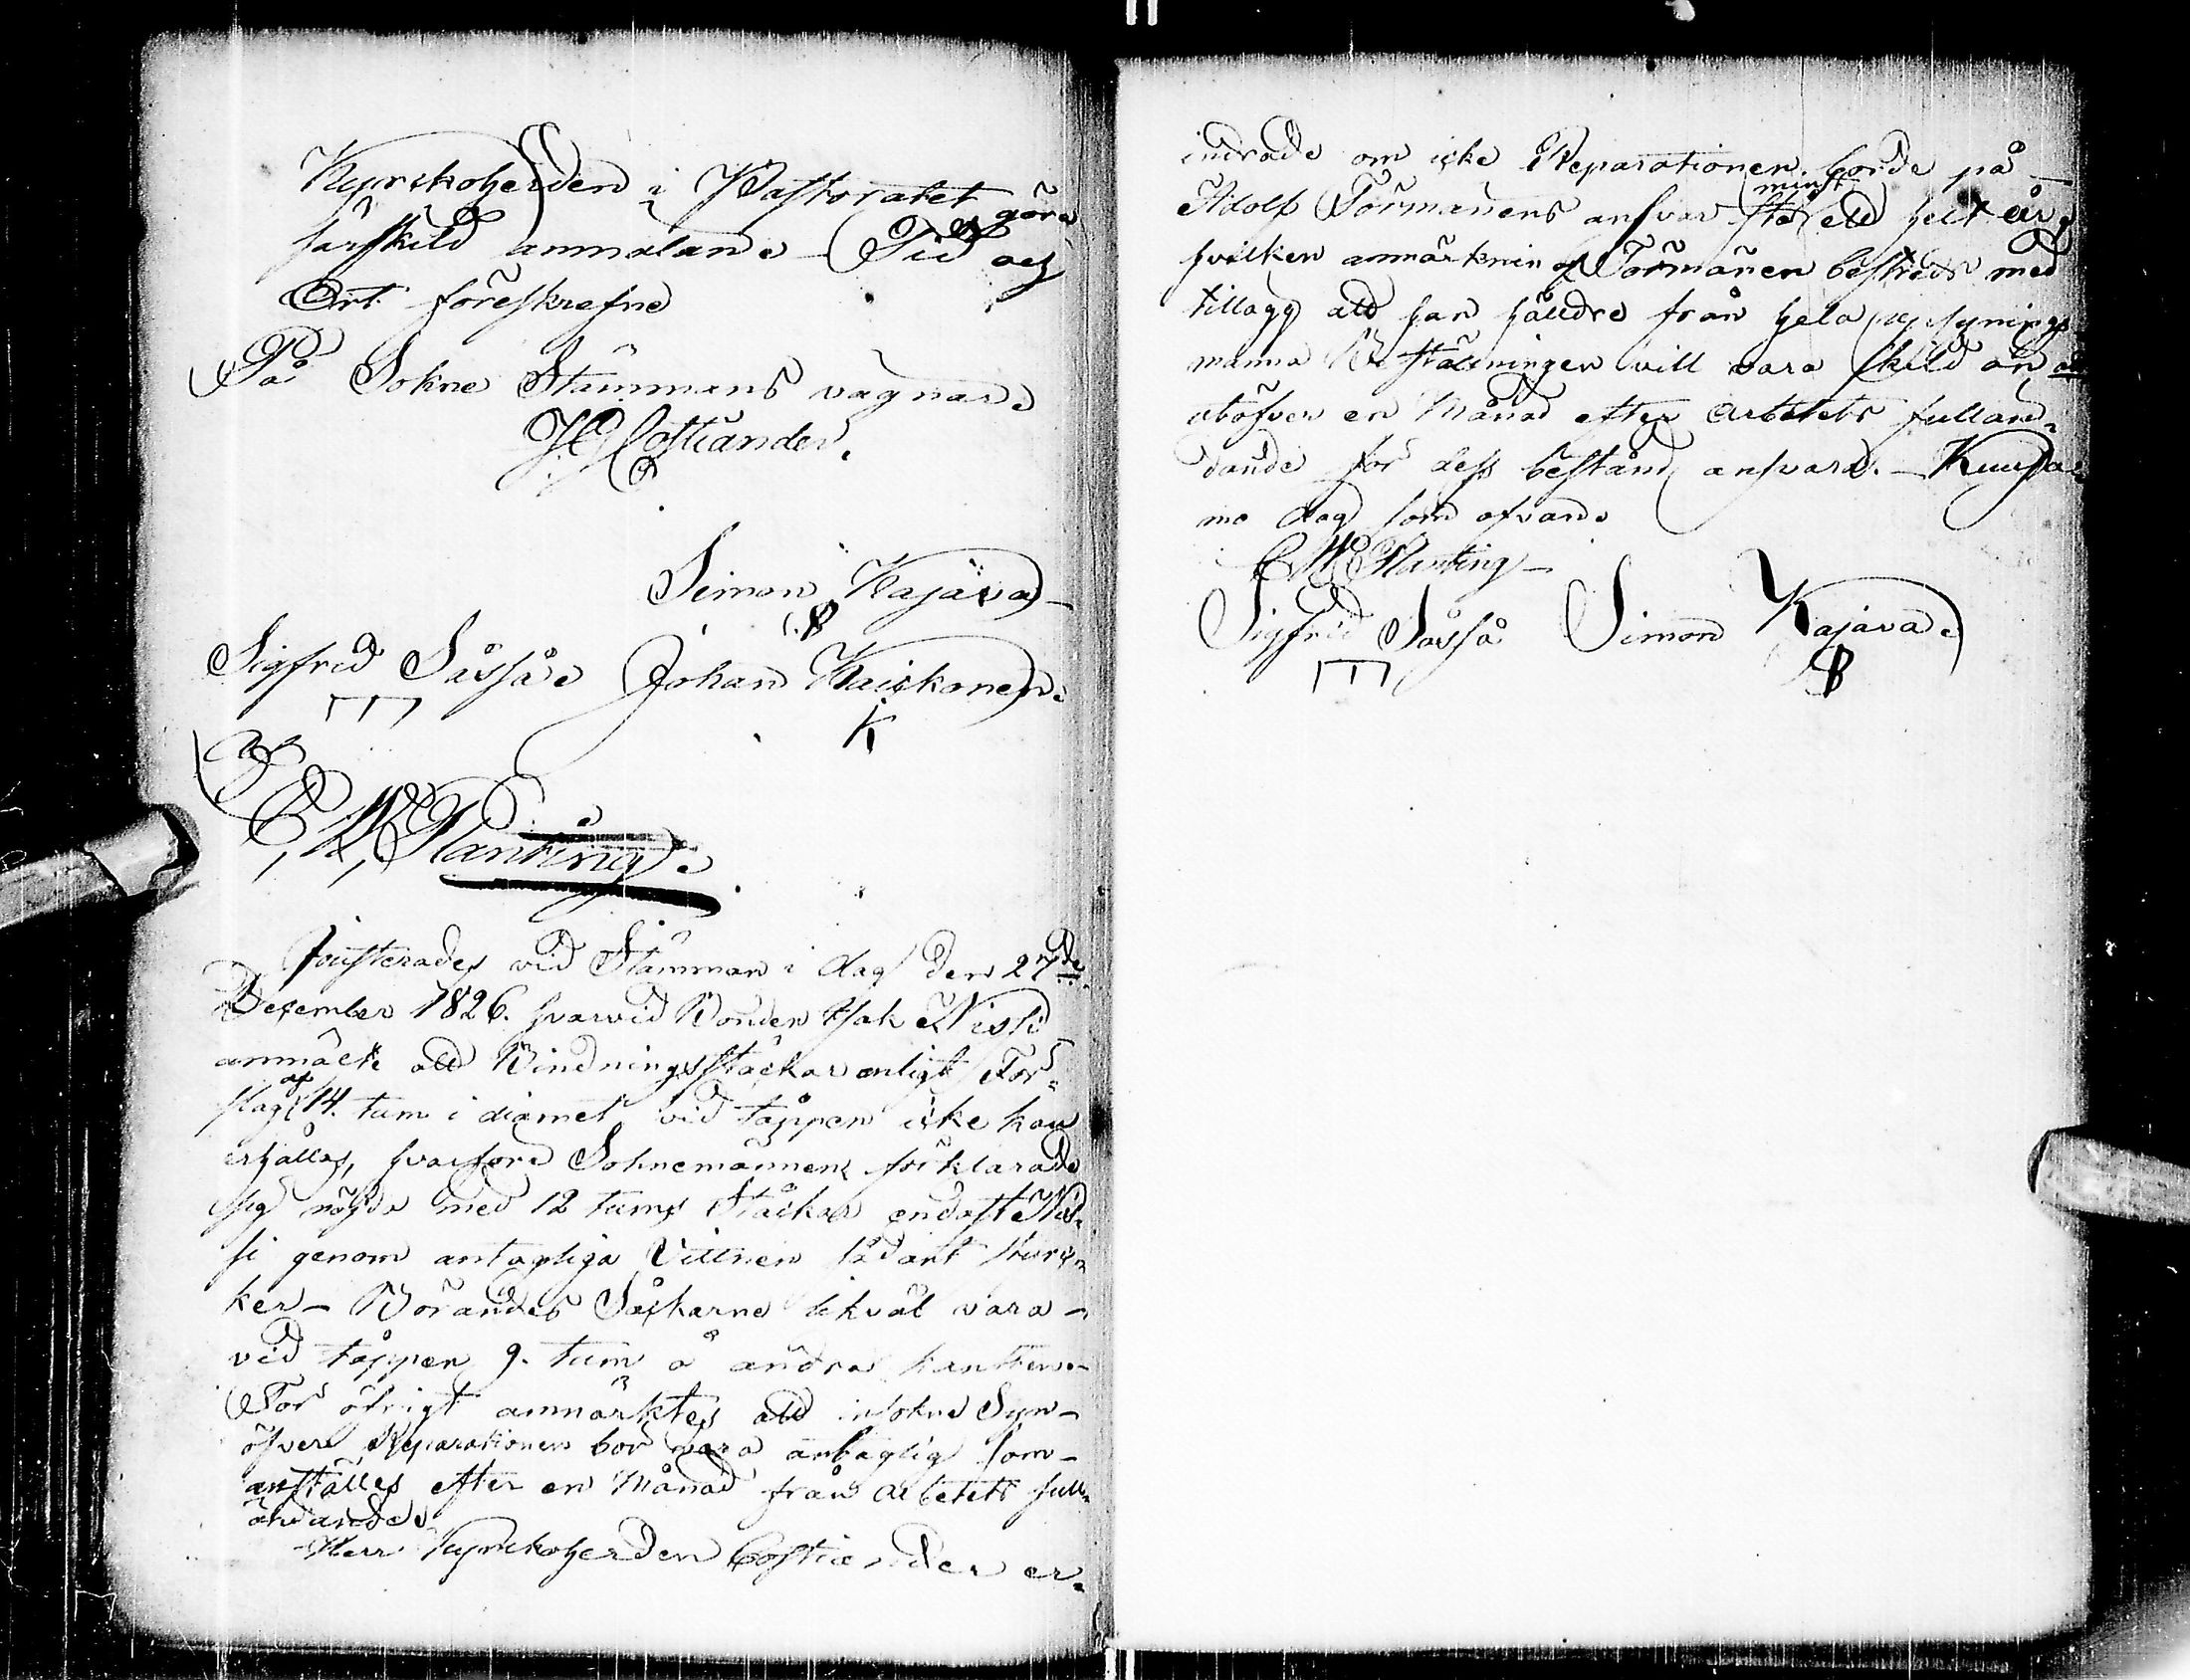 Kyrckoherden i Pastoratet göra
särskild anmälan. Tid och
Ort föreskrefne
På Sokne Stämmans vägnar.
Simon Kajava
Sigfrid Såsså. Johan Kaiskonen.
K
och
C. W. Planting.
Jousterades vid Stämman i dag den 27de
December 1826. hvarvid Bonden Isak Nissi
anmälte att Bindningsstäckar enligt För-
slag af 14. tum i diamet. vid tåppen icke kan
erhållas, hvarföre Sokne männen förklarade
sig nöjda med 12 tums Ståckar endast Nis-
si genom antagliga Vittnen sådant styrc-
ker – Börandes Såckarne likväl vara –
vid tåppen 9. tum å andra kanten –
För öfrigt anmärktes att insokne Syn –
öfver Reparationen bör vara antaglig som –
anställes efter en Månad från arbetets full-
ändande.
Herr Kyrckoherden Costiander er-
indrade om icke Reparationen borde på –
Adolf Törmänens ansvar stå minst ett helt år,
hvilken anmärkning Törmänen bestred med
tillägg att han hälldre från hela
manna Beställningen vill vara skild än att
utöfver en Månad efter arbetets fullän-
dande för dess bestånd ansvara. – Kuusa-
mo dag som ofvan.
C W Planting –
Sigfrid Såsså Simon Kajava.